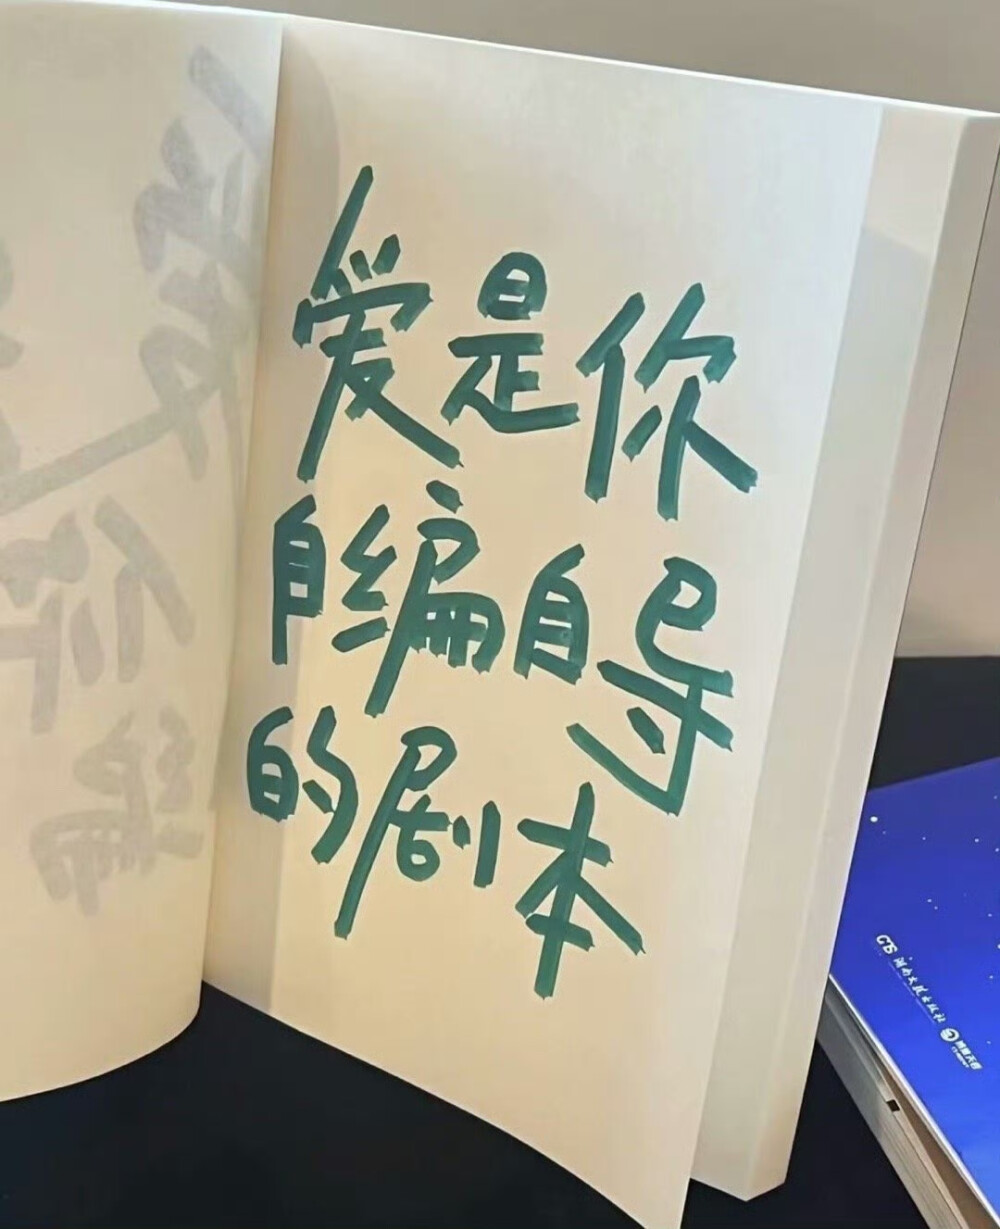 爱是你
自编自导
的剧本
湖南文艺出版社
博集天卷